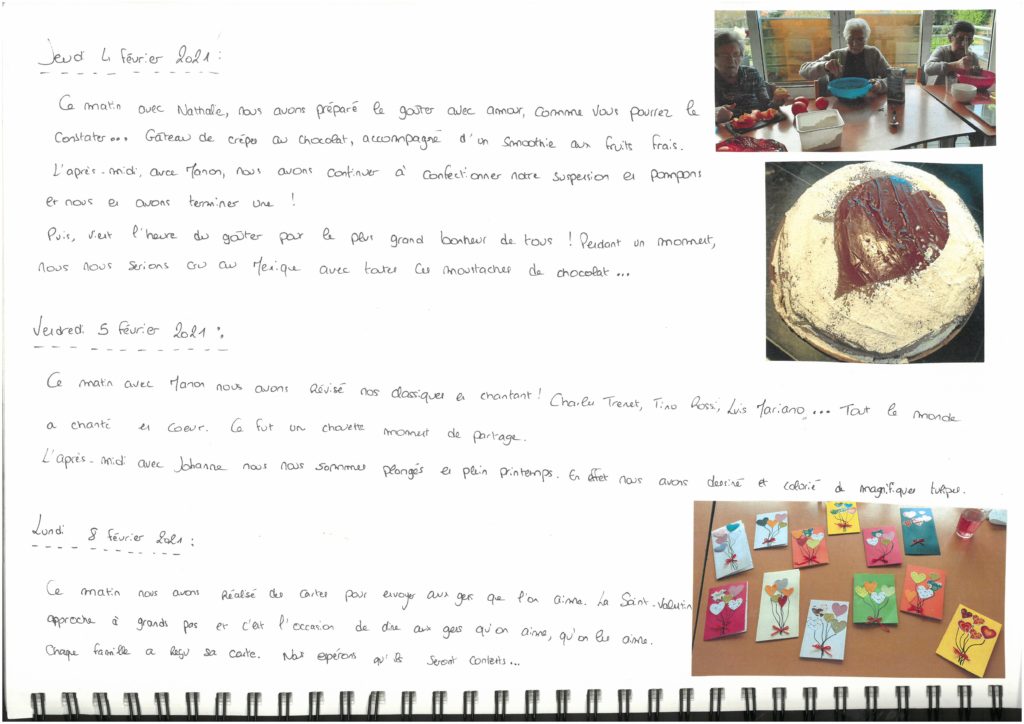 Jeudi 4 février 2021 :
Ce matin avec Nathalie, nous avons préparé le goûter avec amour, comme vous pourrez le
constater... Gâteau de crêpes au chocolat, accompagné d'un smoothie aux fruits frais.
L'après-midi, avec Manon, nous avons continuer à confectionner notre suspension en pompons
et nous en avons terminer une !
Puis, vient l'heure du goûter pour le plus grand bonheur de tous ! Pendant un moment,
nous nous serions cru au Mexique avec toutes ces moustaches de chocolat...
Vendredi 5 février 2021 :
Ce matin avec Manon nous avons révisé nos classiques en chantant ! Charles Trenet, Tino Rossi, Luis Mariano, ... Tout le monde
a chanté en coeur. Ce fut un chouette moment de partage.
L'après-midi avec Johanne nous nous sommes plongés en plein printemps. En effet nous avons dessiné et colorié de magnifiques tulipes.
Lundi 8 février 2021 :
Ce matin nous avons réalisé des cartes pour envoyer aux gens que l'on aime. La Saint-Valentin
approche à grands pas et c'est l'occasion de dire aux gens qu'on aime, qu'on les aime.
Chaque famille a reçu sa carte. Nous espérons qu'ils seront contents...